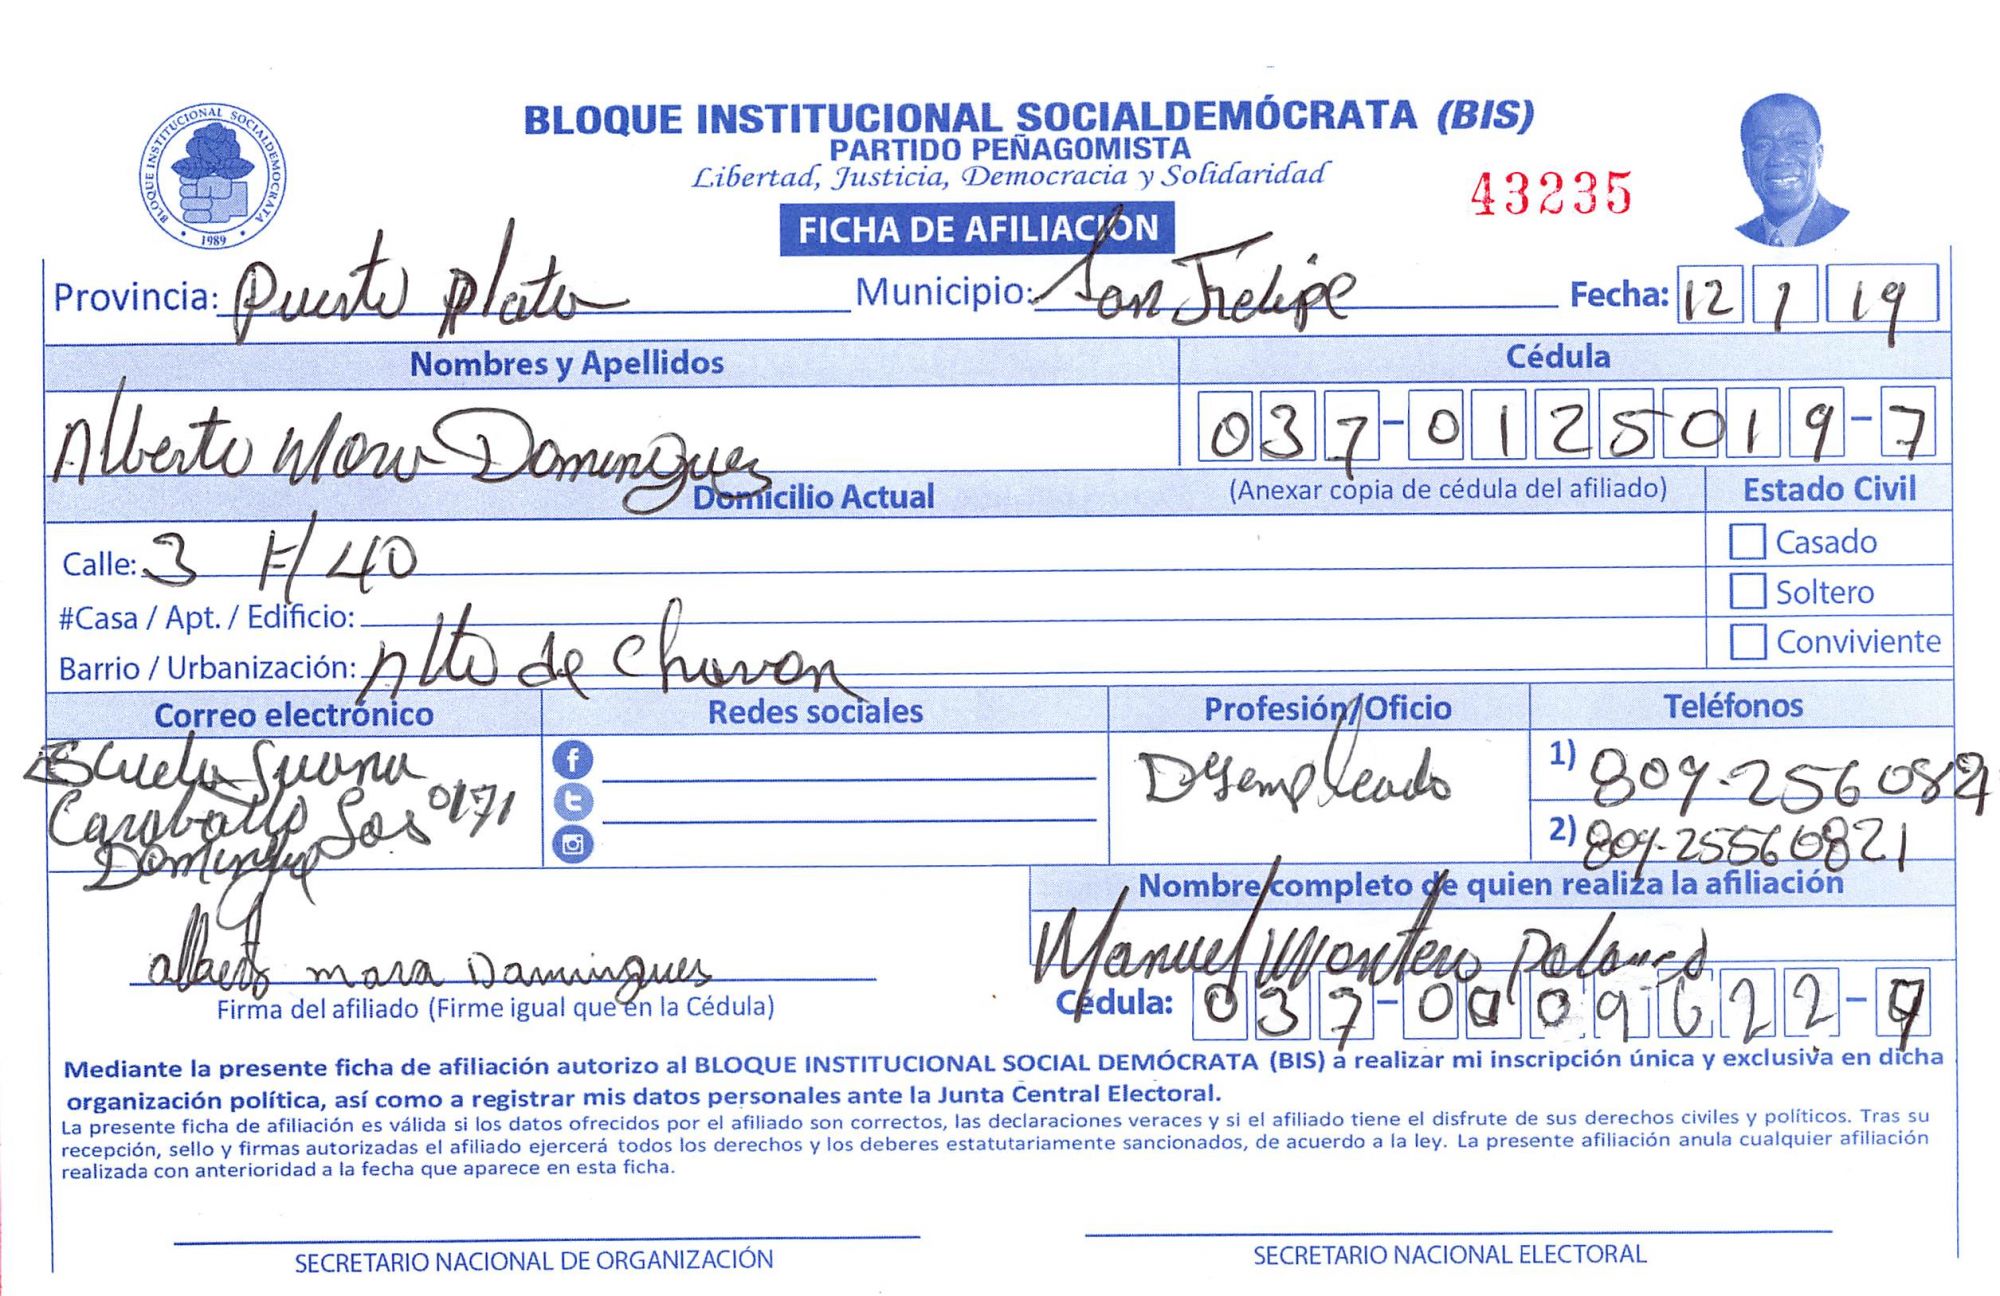 BLOQUE INSTITUCIONAL SOCIALDEMÓCRATA (BIS)
PARTIDO PEÑAGOMISTA
Libertad, Justicia, Democracia y Solidaridad
43235
BLOQUE INSTITUCIONAL SOCIALDEMOCRATA
1989
FICHA DE AFILIACIÓN
Provincia: Puerto Plata Municipio: San Felipe Fecha: 12 1 19
Nombres y Apellidos Cédula
Alberto Mora Domingues 037-0125019-7
Domicilio Actual (Anexar copia de cédula del afiliado) Estado Civil
Calle: 3 #/40 Casado
#Casa / Apt. / Edificio: Soltero
Barrio / Urbanización: Alto de Chavon Conviviente
Correo electrónico Redes sociales Profesión/Oficio Teléfonos
Escuela Juana Desempleado 1) 809-256 082
Caraballo 0171 2) 809-25560821
Nombre completo de quien realiza la afiliación
Manuel Montero
alberto mara Damingues
Firma del afiliado (Firme igual que en la Cédula) Cédula: 037-0009622-
Mediante la presente ficha de afiliación autorizo al BLOQUE INSTITUCIONAL SOCIAL DEMÓCRATA (BIS) a realizar mi inscripción única y exclusiva en dicha
organización política, así como a registrar mis datos personales ante la Junta Central Electoral.
La presente ficha de afiliación es válida si los datos ofrecidos por el afiliado son correctos, las declaraciones veraces y si el afiliado tiene el disfrute de sus derechos civiles y políticos. Tras su
recepción, sello y firmas autorizadas el afiliado ejercerá todos los derechos y los deberes estatutariamente sancionados, de acuerdo a la ley. La presente afiliación anula cualquier afiliación
realizada con anterioridad a la fecha que aparece en esta ficha.
SECRETARIO NACIONAL DE ORGANIZACIÓN SECRETARIO NACIONAL ELECTORAL